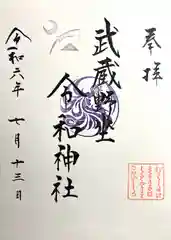 奉拝
武蔵野坐
令和神社
令和六年
七月十三日